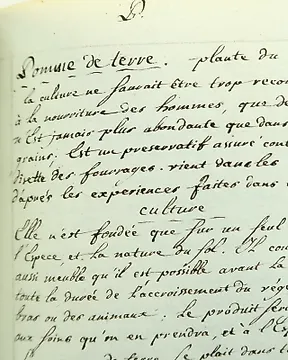 P.
Pomme de terre. plante du
la culture ne saurait être trop recom
à la nourriture des hommes, que de
n'est jamais plus abondante que dans
grains, Est un preservatif assuré cont
disette des fourrages. vient dans les
d'après les experiences faites dans
culture
Elle n'est fondée que sur un seul
l'Espece, et la nature du sol. Il con
aussi meuble qu'il est possible avant la
toute la durée de l'accroissement du vége
bras ou des animaux; le produit sera
aux soins qu'on en prendra, et à l'Esp
de terre se plait dans t